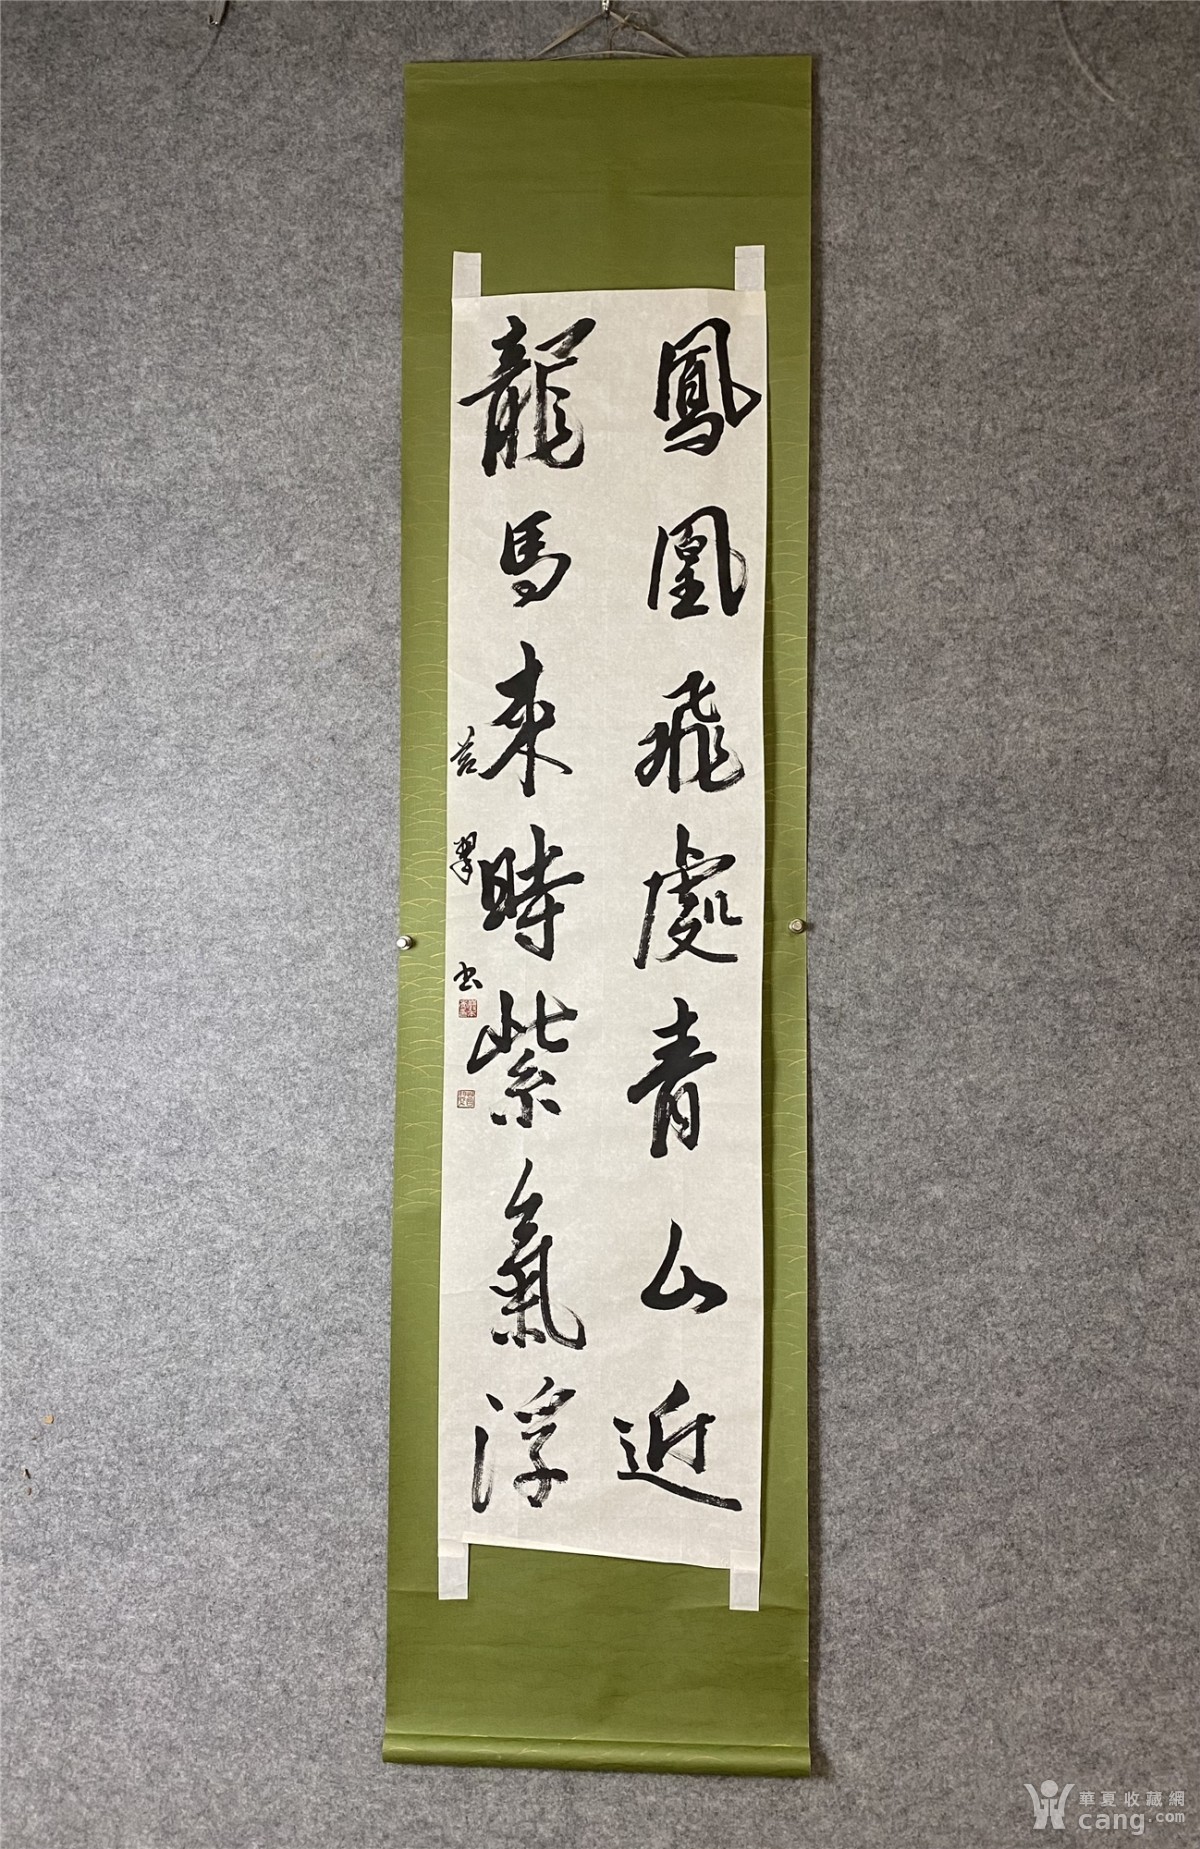 鳳凰飛處青山近
龍馬来時紫氣浮
翠書
華夏收藏網
cang.com